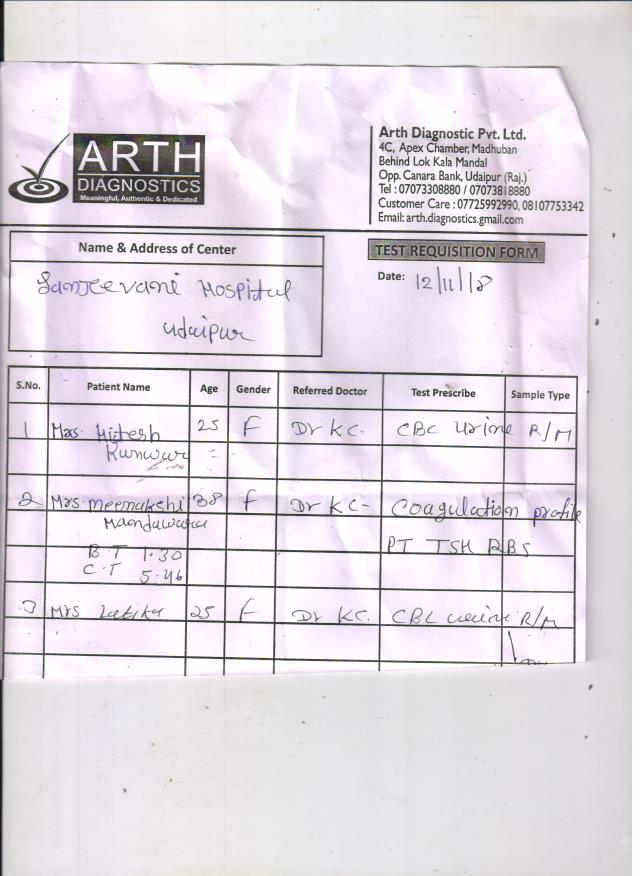 ARTH
DIAGNOSTICS
Meaningful, Authentic & Dedicated
Arth Diagnostic Pvt. Ltd.
4C, Apex Chamber, Madhuban
Behind Lok Kala Mandal
Opp. Canara Bank, Udaipur (Raj.)
Tel : 07073308880 / 07073818880
Customer Care : 07725992990, 08107753342
Email: arth.diagnostics.gmail.com
Name & Address of Center
TEST REQUISITION FORM
Sanjeevani Hospital
Udaipur
Date: 12/11/18
S.No. Patient Name Age Gender Referred Doctor Test Prescribe Sample Type
1 Mrs. Hitesh 25 F Dr KC. CBC Urine R/M
Kunwar
2 Mrs. Meenakshi 38 F Dr KC- Coagulation profile
Mandawara PT TSH RBS
B.T 1.30
C.T 5.46
3 Mrs Latika 25 F Dr KC. CBC urine R/M